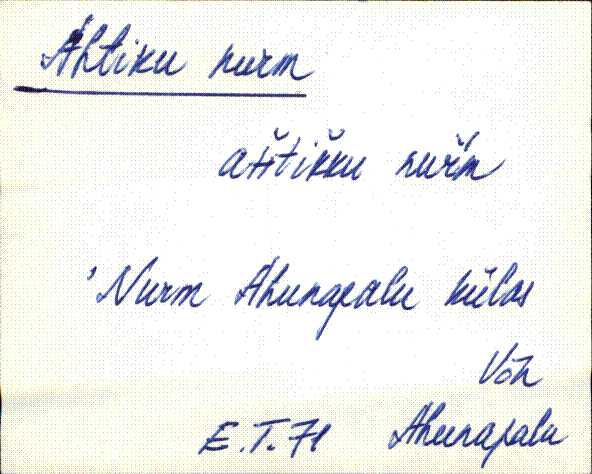 Ahtiku nurm
ah̆tik̆ku nur̆m
'Nurm Ahunapalu külas
Võn
E.T.71 Ahunapalu